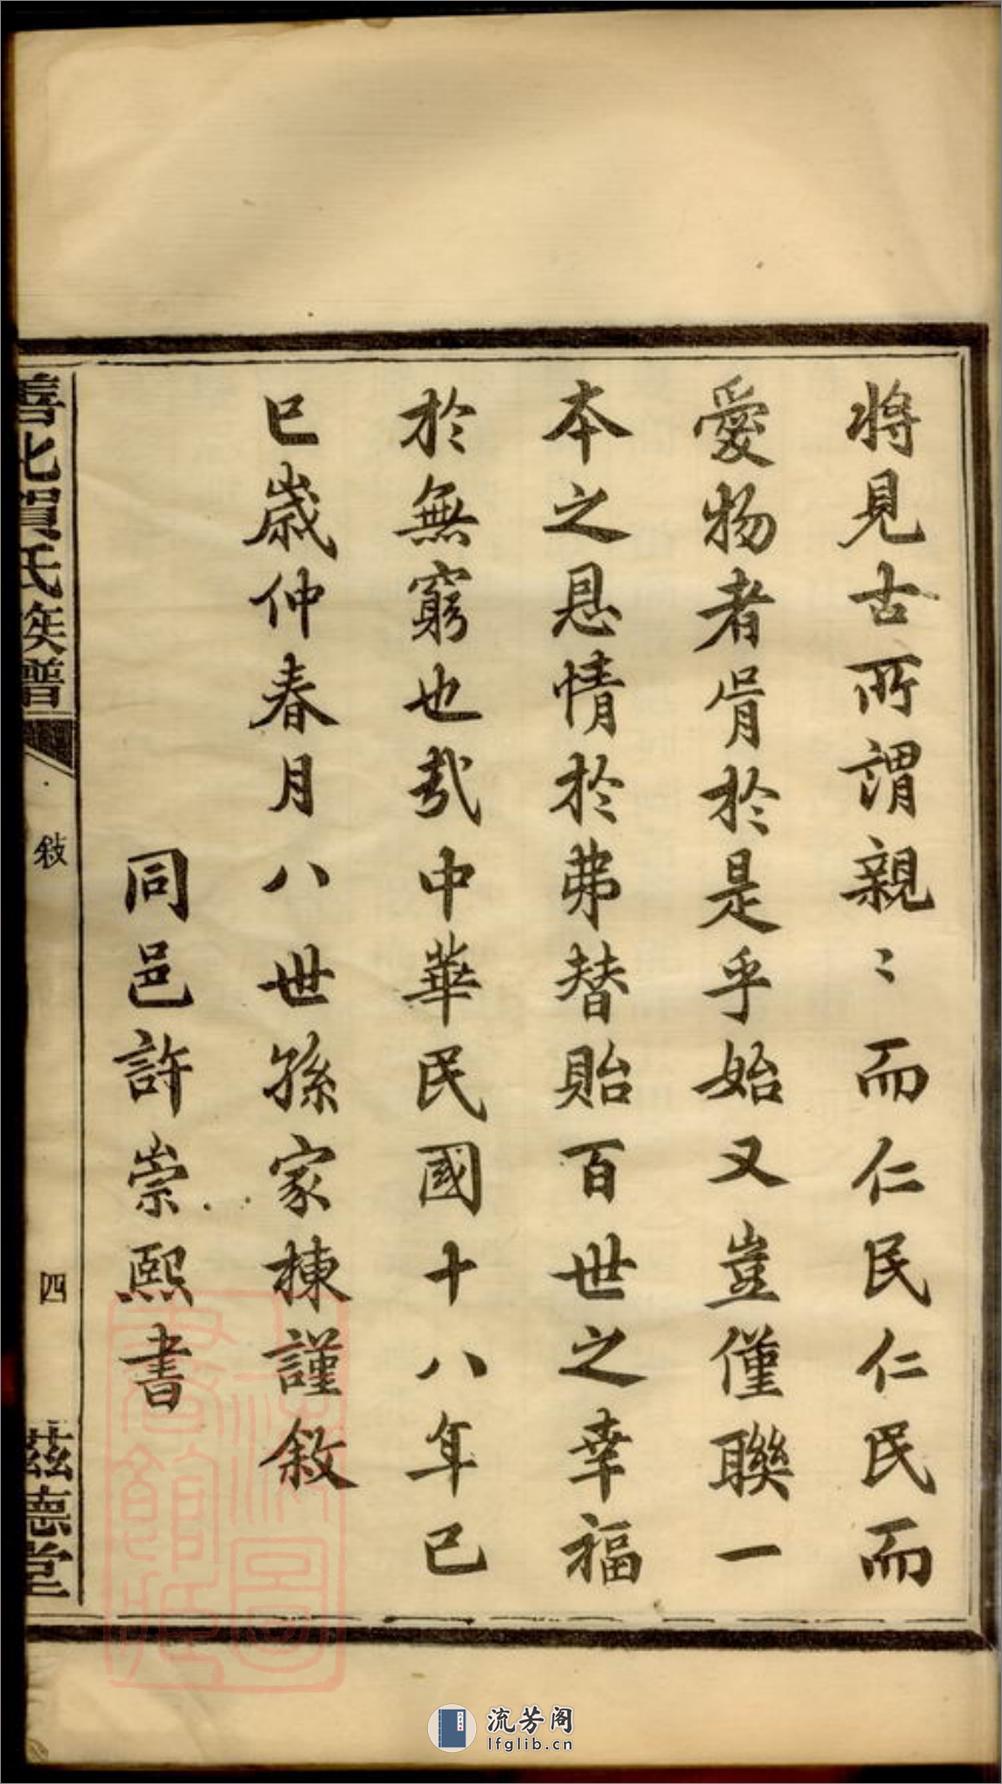 將見古所謂親〻而仁民仁民而
愛物者胥於是乎始又豈僅聯一
本之恩情於弗替貽百世之幸福
於無窮也哉中華民國十八年己
巳歲仲春月八世孫家棟謹敘
同邑許崇熙書
善化賀氏族譜
敘
四
茲德堂
流芳阁
lfglib.cn